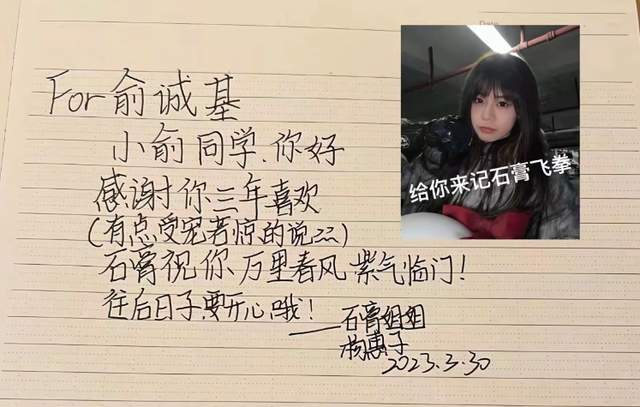 Date
For 俞诚基
小俞同学、你好
感谢你三年喜欢
(有点受宠若惊的说zz)
石膏祝你万里春风紫气临门!
往后日子要开心哦!
——石膏姐姐
杨惠子
2023.3.30
给你来记石膏飞拳